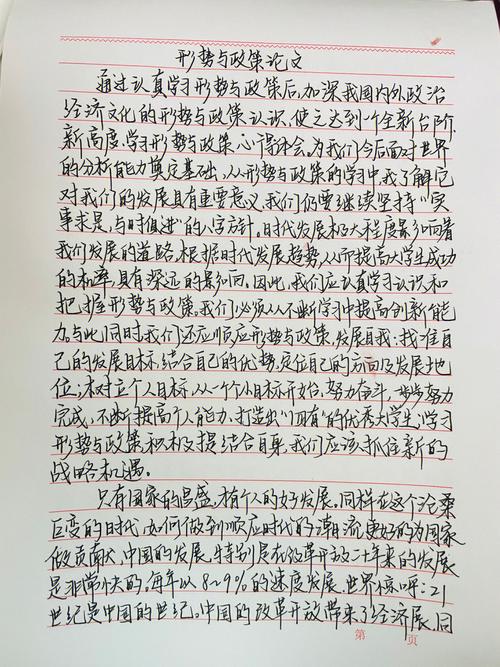 形势与政策论文
通过认真学习形势与政策后,加深我国内外政治
经济文化的形势与政策认识,使之达到一个全新台阶,
新高度,学习形势与政策心得体会,为我们今后面对世界
的分析能力奠定基础,从形势与政策的学习中,我了解它
对我们的发展具有重要意义,我们仍要继续坚持"实
事求是,与时俱进"的八字方针。时代发展极大程度影响着
我们发展的道路,根据时代发展趋势,从而提高大学生成功
的机率,具有深远的影响。因此,我们应认真学习认识和
把握形势与政策。我们必须从不断学习中提高创新能
力。与此同时我们还应顺应形势与政策,发展自我:找准自
己的发展目标,结合自己的优势,定位自己的方向及发展地
位;树立个人目标,从一个个小目标开始,努力奋斗,步步努力
完成,不断提高个人能力,打造出"四有"的优秀大学生;学习
形势与政策和积极提结合自身,我们应该抓住新的
战略机遇。
只有国家的昌盛,才有个人的好发展。同样在这个沧桑
巨变的时代,如何做到顺应时代的潮流,更好的为国家
做贡献,中国的发展,特别是在改革开放二十年来的发展
是非常快的。每年以8~9%的速度发展,世界惊呼:21
世纪是中国的世纪。中国的改革开放带来了经济展,同
第 页